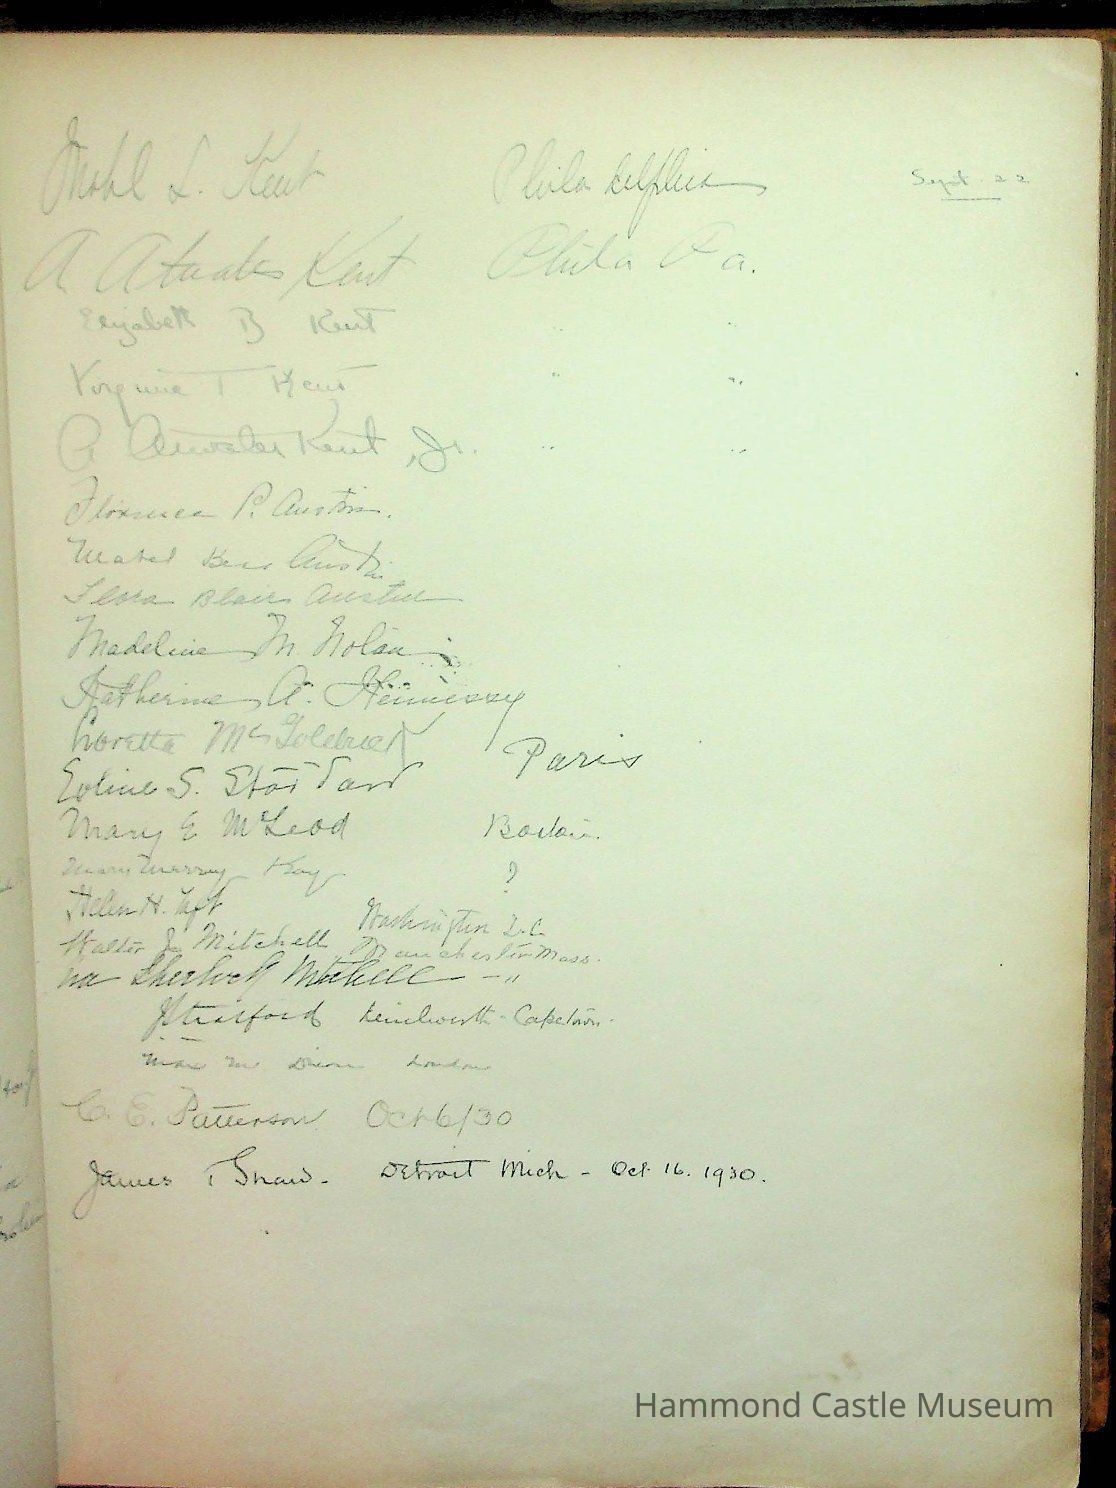 Mabel L. Kent Philadelphia Sept. 22
A Atwater Kent Phila Pa.
Elizabeth B Kent " "
Virginia T Kent " "
A Atwater Kent, Jr. " "
Florence P. Austin.
Mabel Austin
Flora Blair Austin
Madeline M. Nolan
Katherine A. Hennessy
Loretta McGoldrick
Eoline S. Stoddard Paris
Mary E McLeod Boston.
Mary Murray Kay ?
Helen H. Taft Washington D.C.
Walter J. Mitchell Manchester Mass.
Mitchell - "
Stratford Kenilworth - Capetown.
Max M Dixon London
C. E. Patterson Oct 6/30
James T Shaw. Detroit Mich - Oct 16. 1930.
Hammond Castle Museum